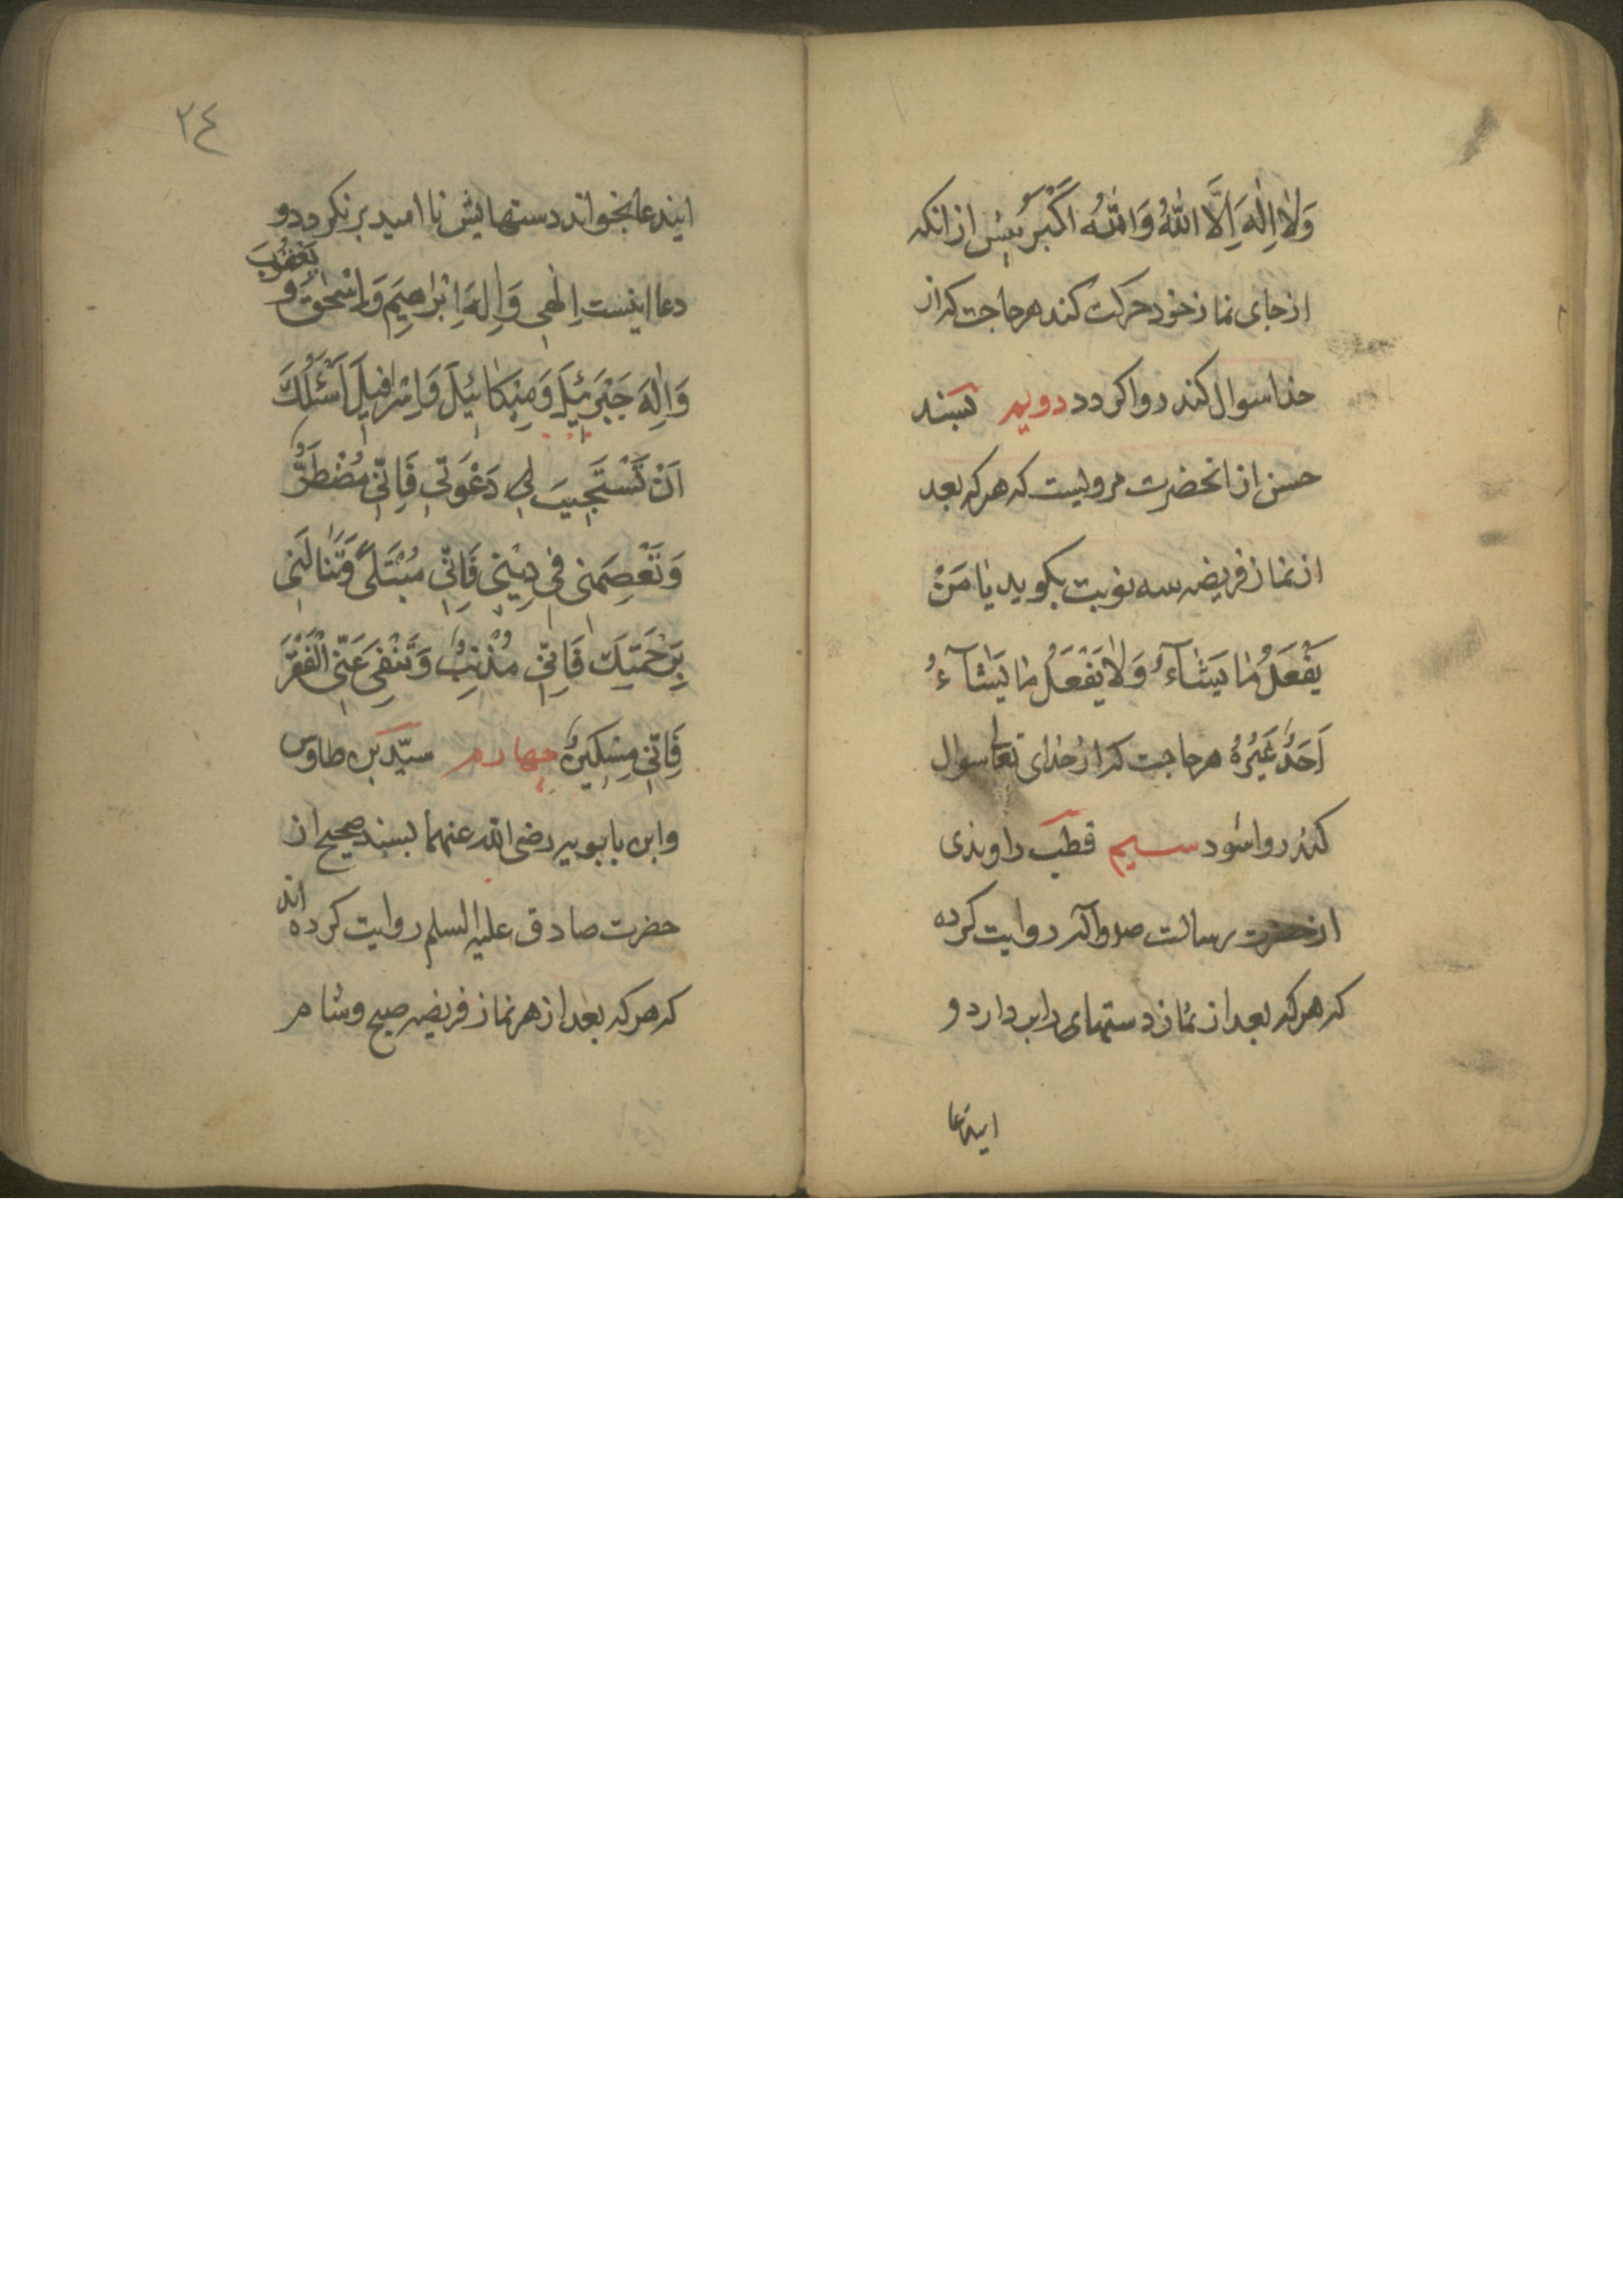 وَلاٰ اِلٰهَ اِلَّا اللّٰهُ وَاللّٰهُ اَكْبَرُ پیش از انکه
از جای نماز خود حرکت کند هر حاجت که از
خدا سوال کند روا کردد دویم بسند
حسن از انحضرت مرویست که هر که بعد
از نماز فریضه سه نوبت بکوید یٰا مَنْ
یَفْعَلُ مٰا یَشٰآءُ وَلاٰ یَفْعَلُ مٰا یَشٰآءُ
اَحَدٌ غَیْرُهُ هر حاجت که از خدای تعالی سوال
کند روا شود سیم قطب راوندی
از حضرت رسالت صلوآله روایت کرده
که هر که بعد از نماز دستهای را بردارد و
ایندعا
٢٤
ایندعا بخواند دستهایش نا امید بر نکردد و
دعا اینست اِلٰهِی وَاِلٰهَ اِبْرٰاهِیمَ وَاِسْحٰقَ وَ یَعْقُوبَ
وَاِلٰهَ جَبْرَئِیلَ وَمِیکٰائِیلَ وَاِسْرٰافِیلَ اَسْئَلُكَ
اَنْ تَسْتَجِیبَ لِی دَعْوَتِی فَاِنّی مُضْطَرٌّ
وَتَعْصِمَنی فِی دِیْنِی فَاِنّی مُبْتَلًی وَتَنٰالَنِی
بِرَحْمَتِكَ فَاِنّی مُذْنِبٌ وَتَنْفِیَ عَنّی الْفَقْرَ
فَاِنّی مِسْکِینٌ چهارم سیّد بن طاوس
وابن بابویه رضی الله عنهما بسند صحیح از
حضرت صادق علیه السلم روایت کرده اند
که هر که بعد از هر نماز فریضه صبح وشام